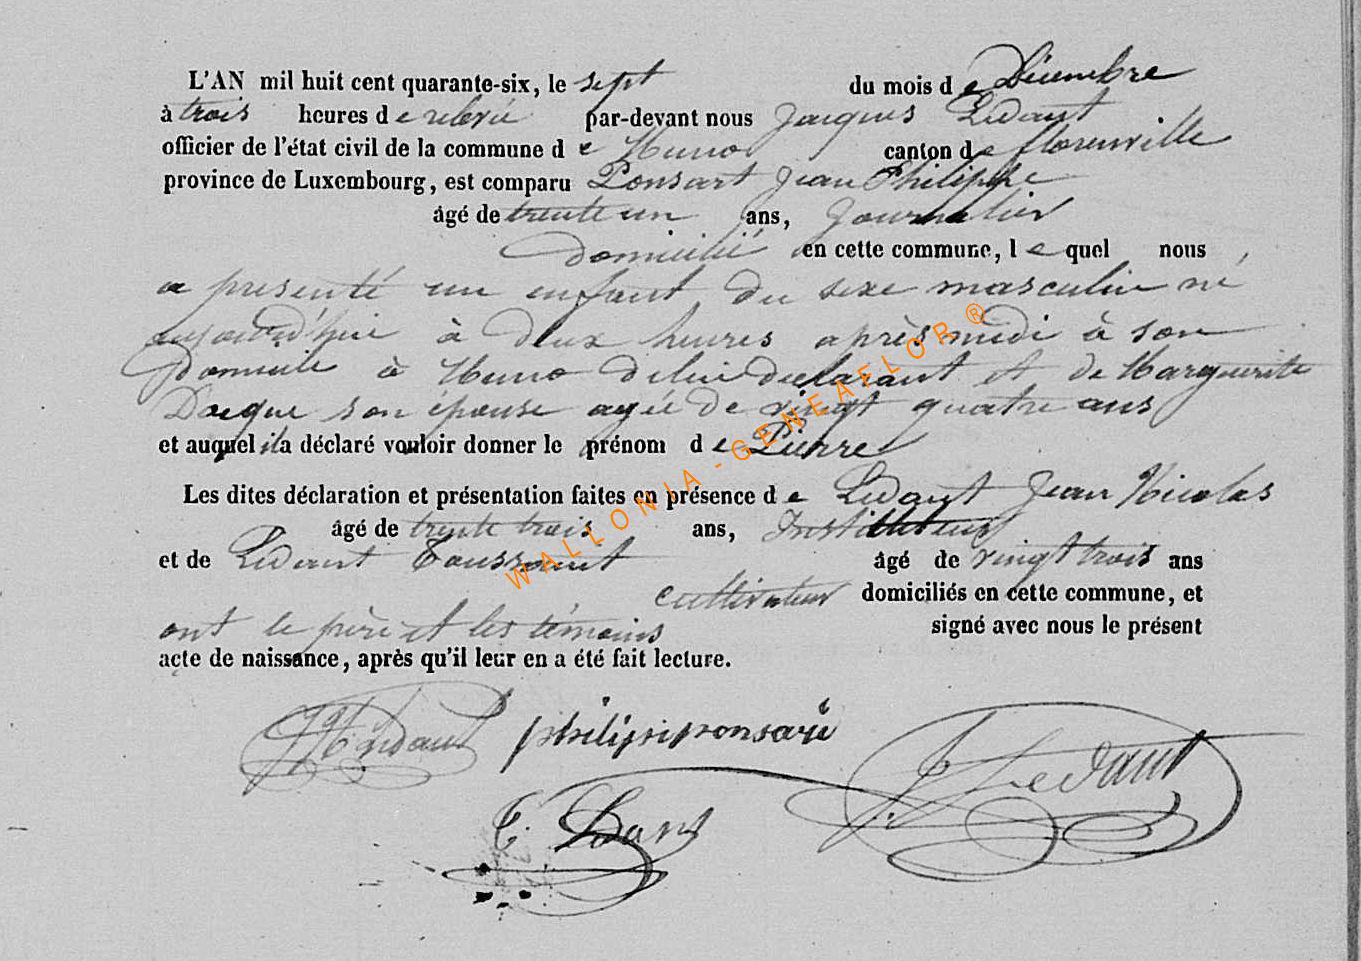 L'AN mil huit cent quarante-six, le sept du mois de Décembre
à trois heures de relevée par-devant nous Jacques Ledant
officier de l'état civil de la commune de Muno canton de florenville
province de Luxembourg, est comparu Ponsart Jean Philippe
âgé de trente un ans, Journalier
Domicilié en cette commune, lequel nous
a presenté un enfant du sexe masculin né
aujourd'hui à deux heures après midi à son
Domicile à Muno de lui declarant et de Marguerite
son épouse agée de vingt quatre ans
et auquel il a déclaré vouloir donner le prénom de Pierre
Les dites déclaration et présentation faites en présence de Ledant Jean Nicolas
âgé de trente trois ans, Instituteur
et de Ledant Toussaint âgé de vingt trois ans
cultivateur domiciliés en cette commune, et
ont le père et les témoins signé avec nous le présent
acte de naissance, après qu'il leur en a été fait lecture.
Ledant philippe ponsart
J. Ledant
T. Ledant
WALLONIA-GENEAFLOR®